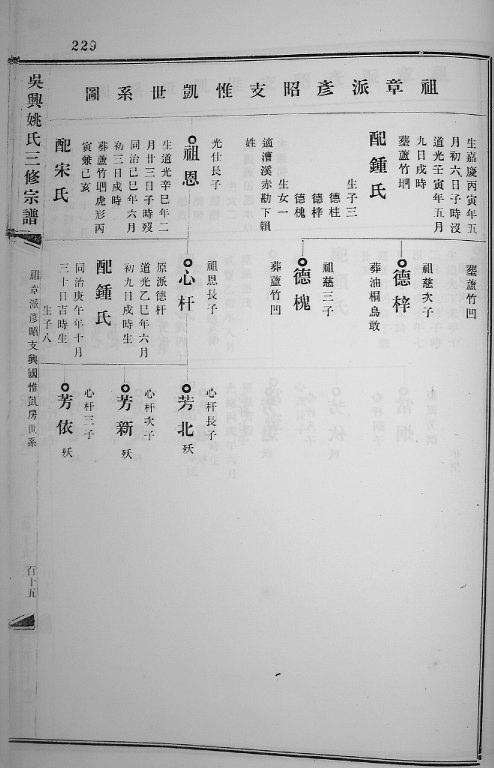 229
祖章派彥昭支惟凱世系圖
生嘉慶丙寅年五
月初六日子時沒
道光壬寅年五月
九日戌時
塟蘆竹坰
配鍾氏
生子三
德桂
德梓
德槐
生女一
適漕溪赤勘下賴
姓
光仕長子
祖恩
生道光辛巳年二
月廿三日子時歿
同治己巳年六月
初三日戌時
葬蘆竹坰虎形丙
寅兼巳亥
配宋氏
塟蘆竹凹
祖慈次子
德梓
葬油桐烏敢
祖慈三子
德槐
葬蘆竹凹
祖恩長子
心杆
原派德杆
道光乙巳年六月
初九日戌時生
配鍾氏
同治庚午年十月
三十日吉時生
生子八
心杆長子
芳北
殀
心杆次子
芳新
殀
心杆三子
芳依
殀
吳興姚氏三修宗譜
祖章派彥昭支興國惟凱房世系
百十五